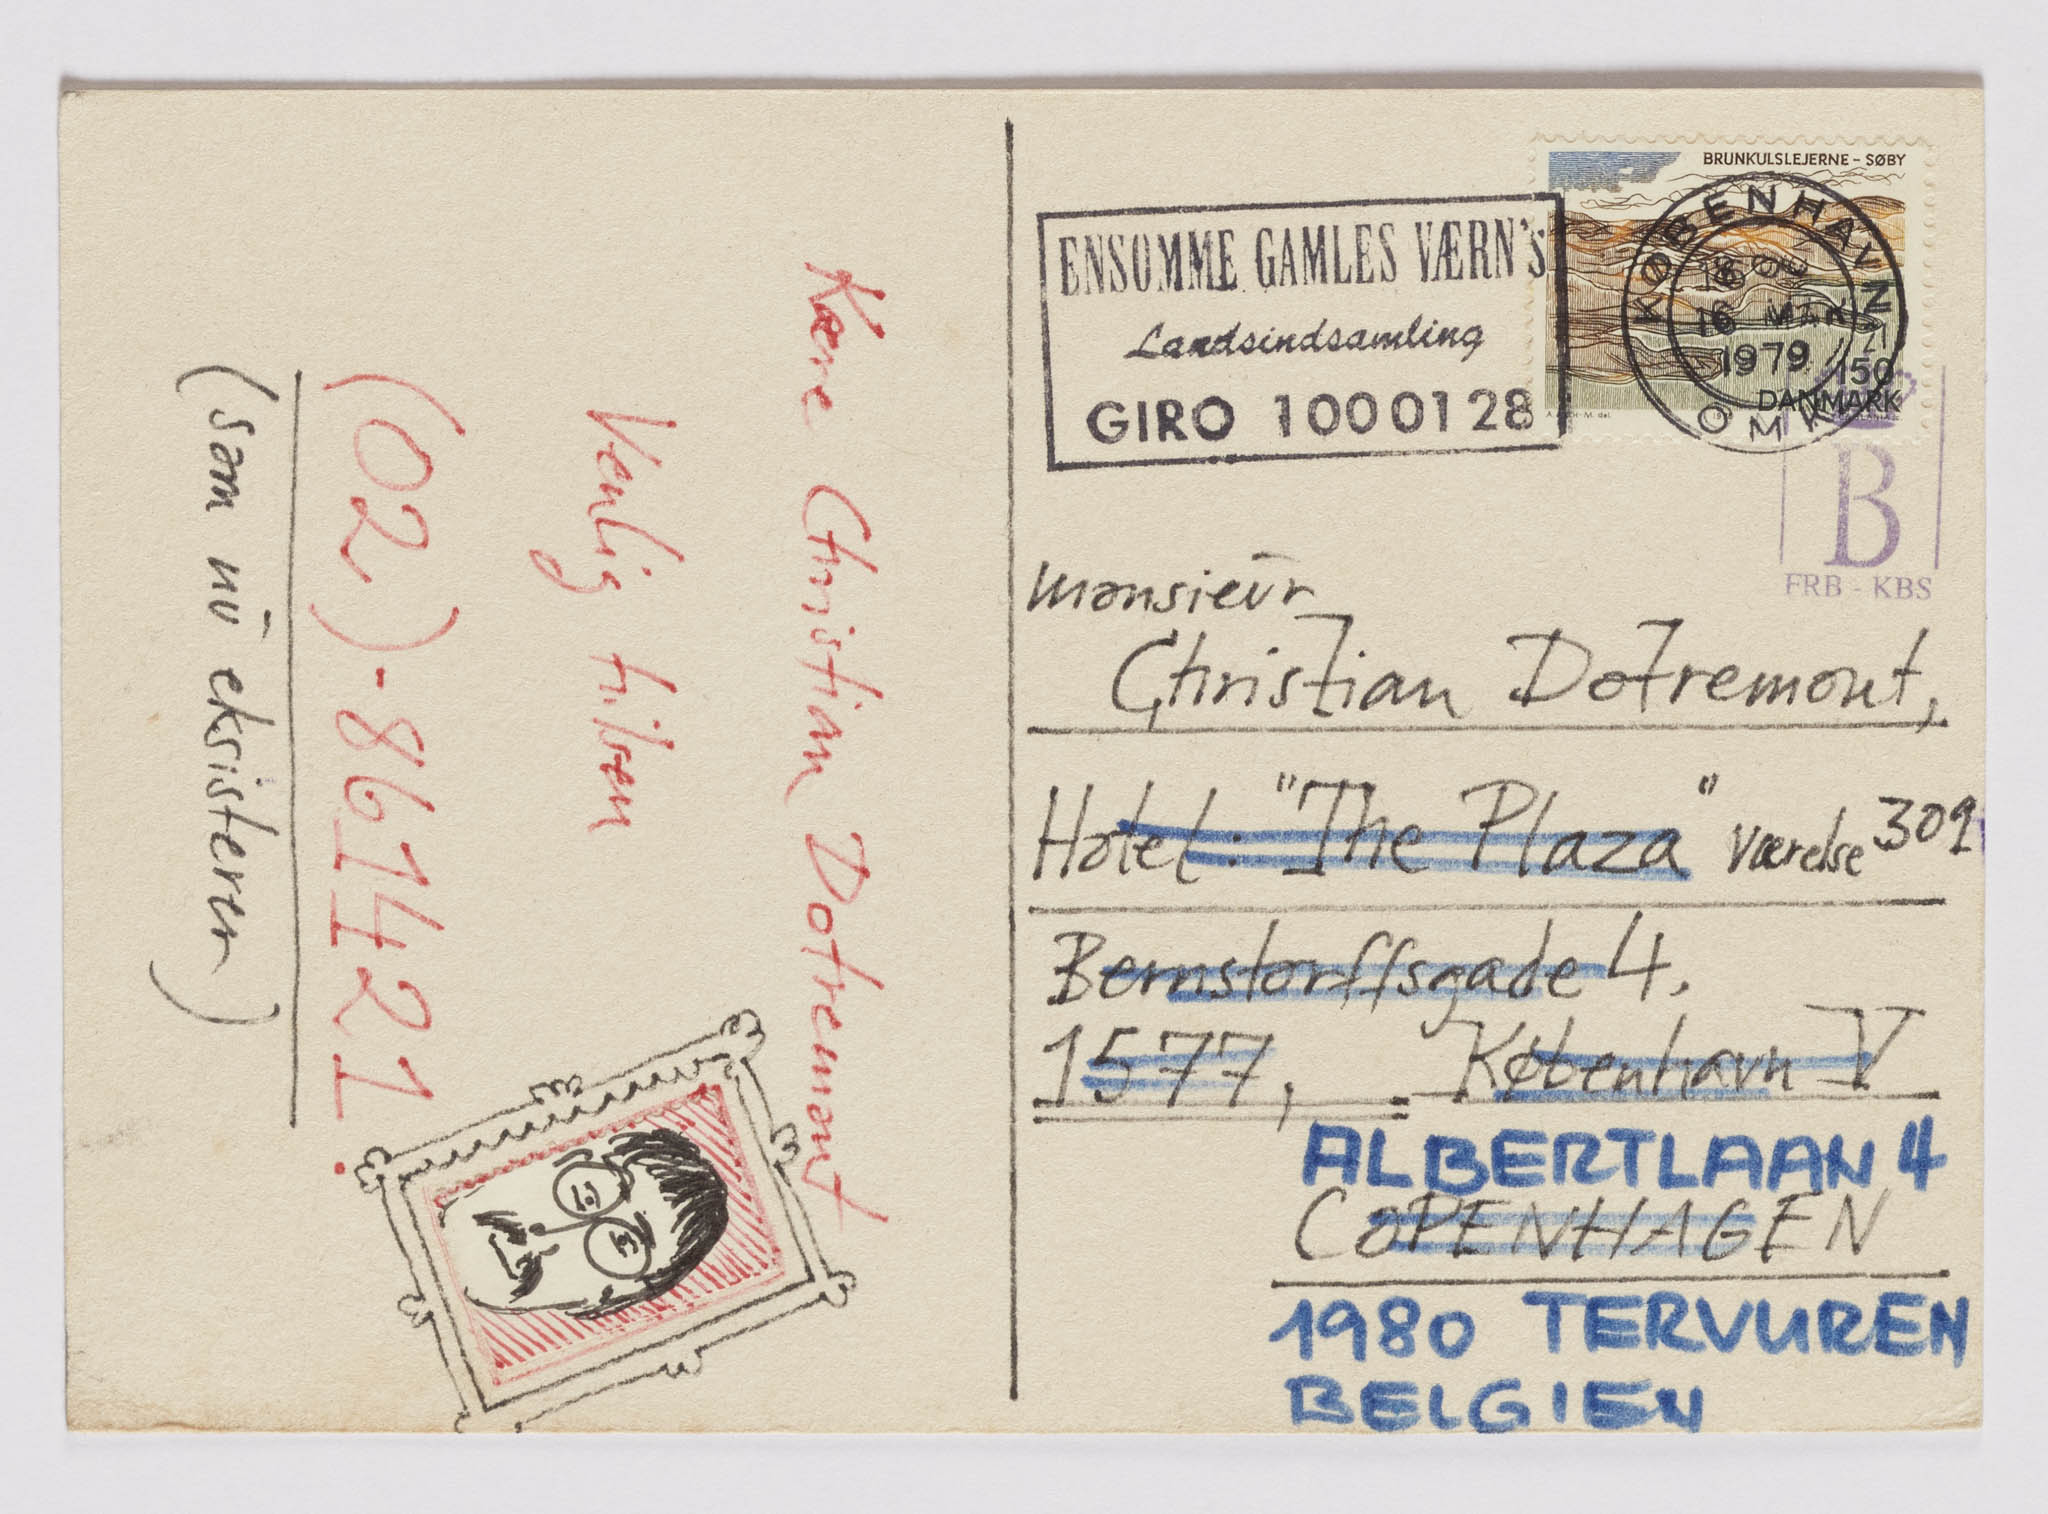 Kære Christian Dotremont
Venlig hilsen
(02)-8614421.
(som nu eksisterer)
ENSOMME GAMLES VÆRN'S
Landsindsamling
GIRO 1000128
BRUNKULSLEJERNE - SØBY
KØBENHAVN
16 MAR
1979
OMK
150
DANMARK
B
FRB - KBS
Monsieur
Christian Dotremont,
Hotel: "The Plaza" Værelse 309
Bernstorffsgade 4.
1577, København V
ALBERTLAAN 4
COPENHAGEN
1980 TERVUREN
BELGIEN